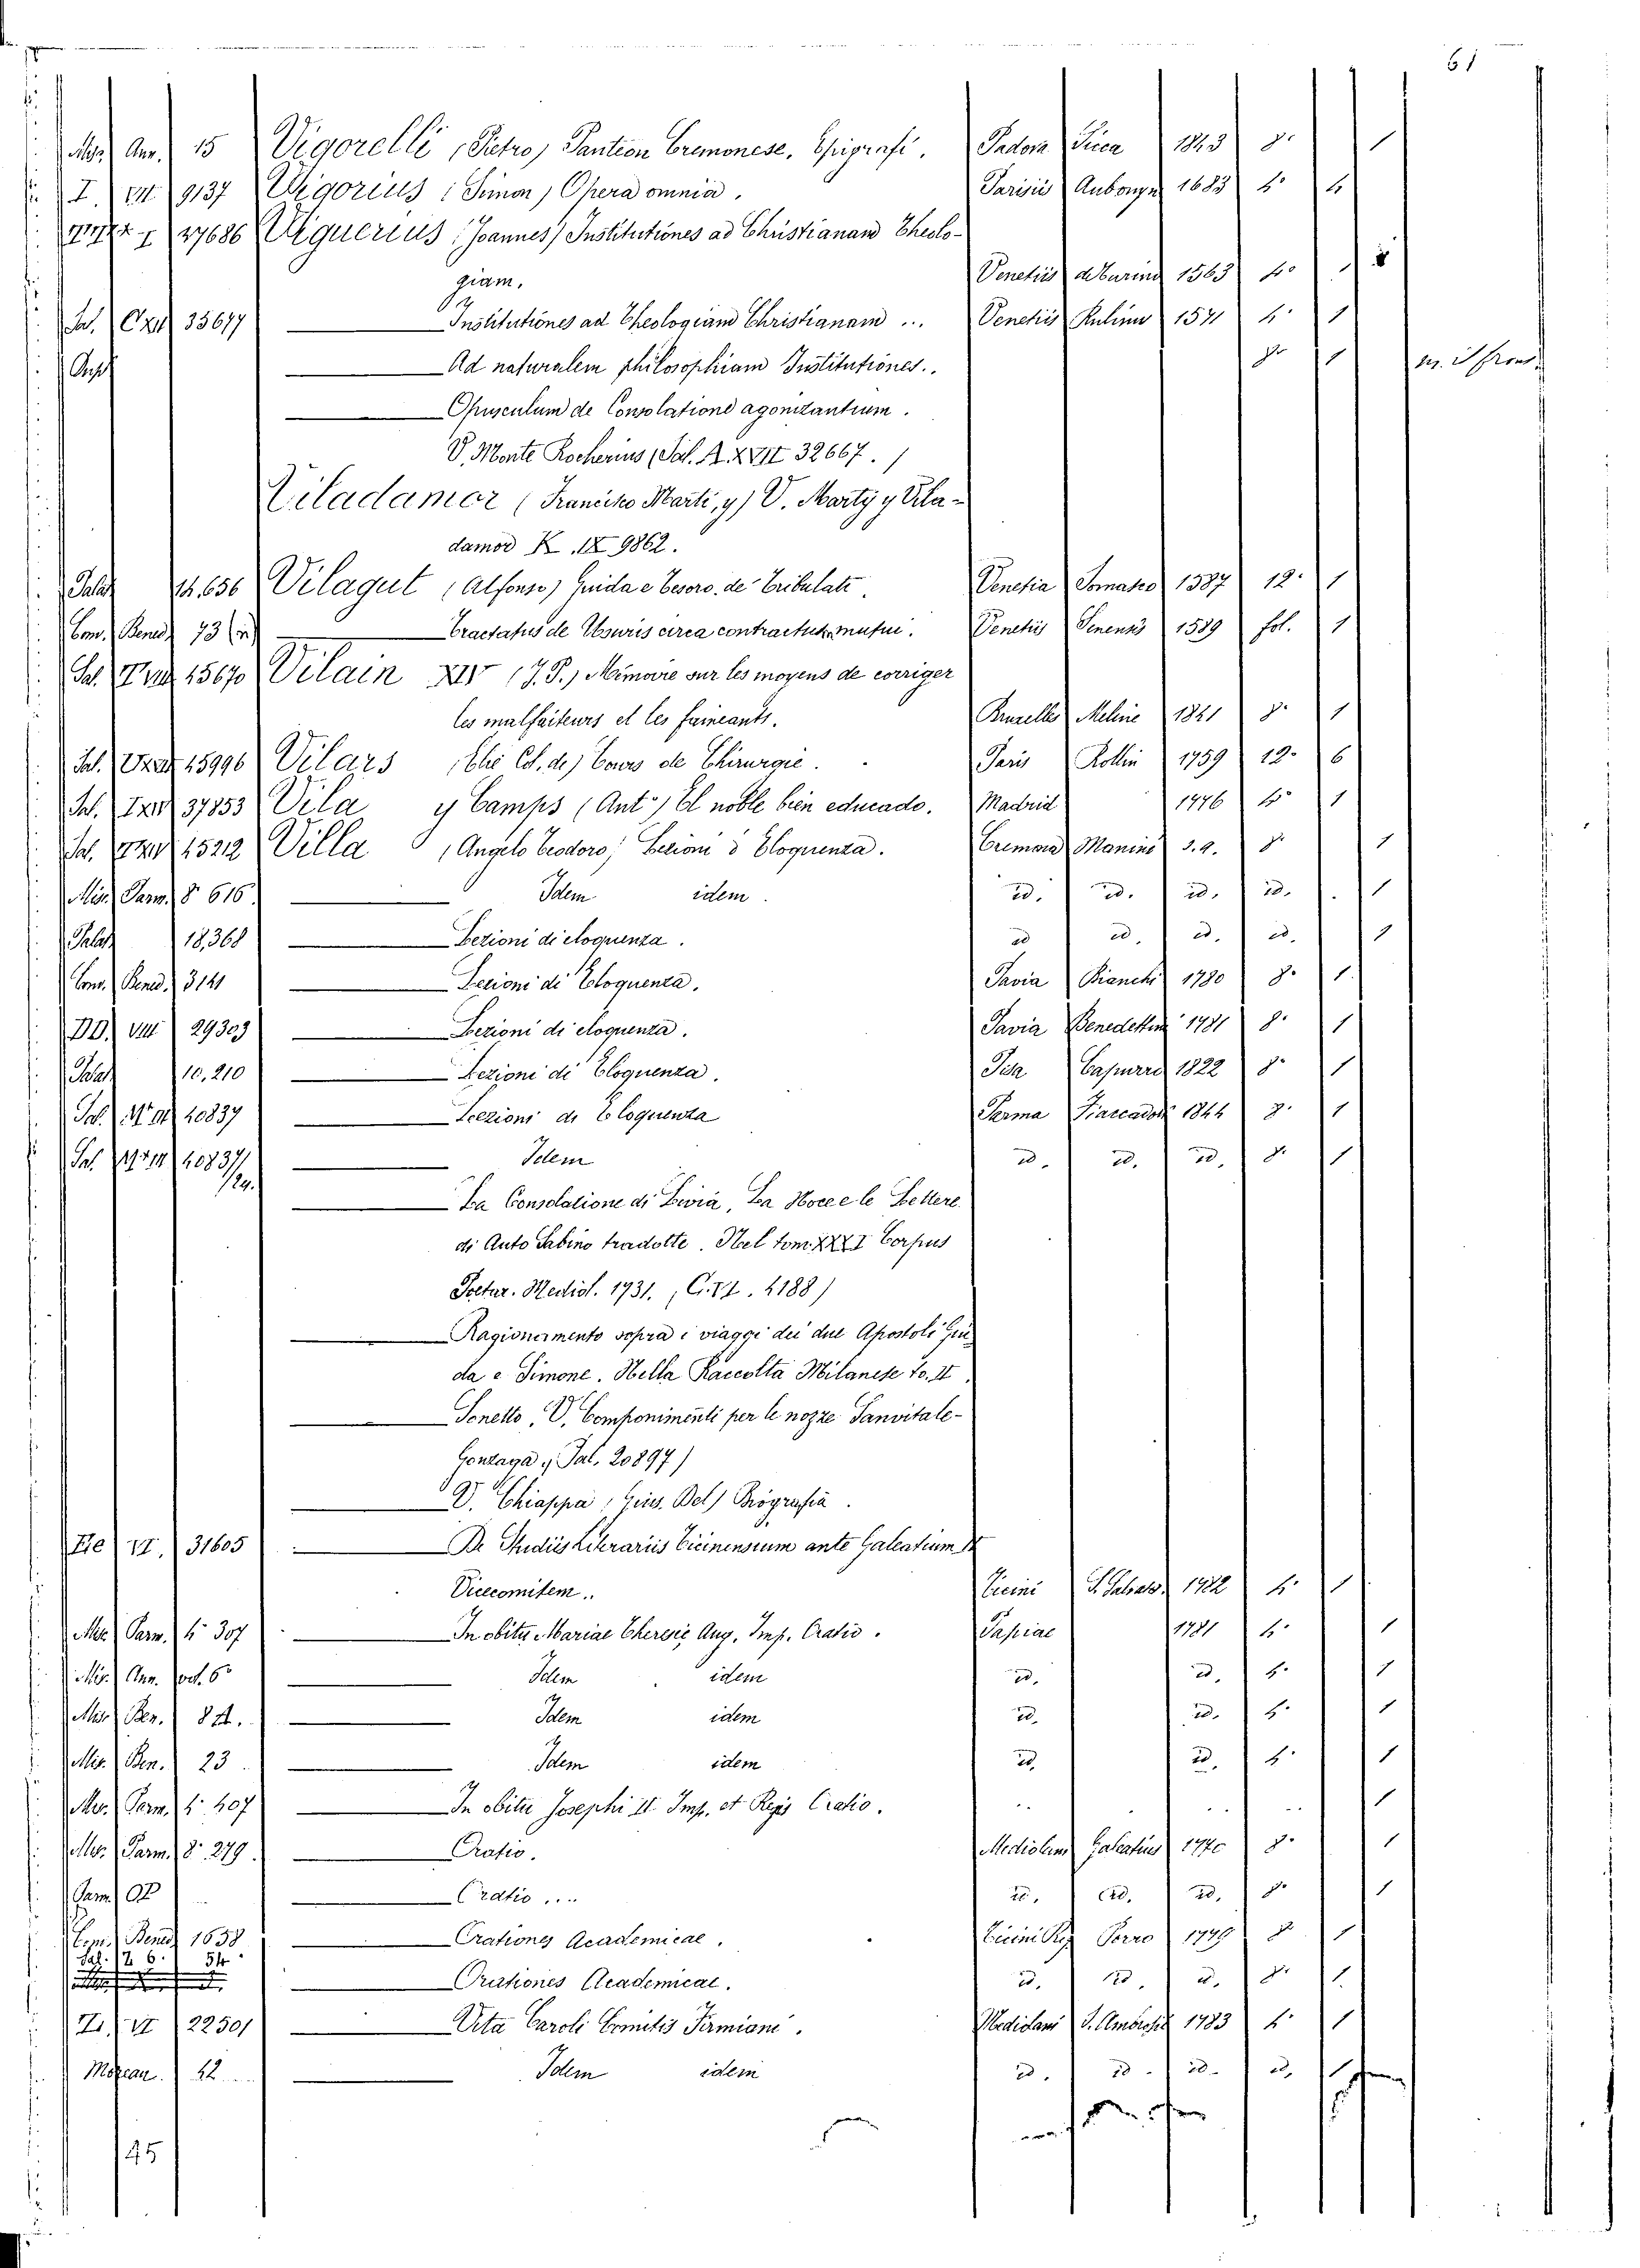 61
Misc. Ann. 15 Vigorelli (Pietro) Pantion Cremonese, Epigrafi. Padova Sicca 1843 8° 1
I. VII 9137 Vigorius (Simon) Opera omnia. Parisiis Aubouyn 1683 4° 4
I 27686 Viguerius (Joannes) Institutiones ad Christianam Theolo-
giam. Venetiis 1563 4° 1
Sal. 33677 Institutiones ad Theologiam Christianam ... Venetiis 1571 4° 1
Ad naturalem philosophiam Institutiones.. 8° 1
Opusculum de Consolatione agonizantium.
V. Monte Rocherius (Sal. A. XVII 32667.)
Viladamor (Francisco Marti, y) V. Marty y Vila-
damor K. IX 9862.
Palat 14.656 Vilagut (Alfonso) Guida e Tesoro de' Tribulati. Venetia Somasco 1587 12° 1
Conv. Bened. 73 Tractatus de Usuris circa contractum mutui. Venetiis Senensis 1589 fol. 1
Sal. 15670 Vilain XIV (J. P.) Mémoire sur les moyens de corriger
les malfaiteurs et les faineants. Bruxelles Meline 1841 8° 1
Sal. 15996 Vilars (Elie Col. de) Cours de Chirurgie. Paris Rollin 1759 12° 6
Sal. 37853 Vila y Camps (Ant°) El noble bien educado. Madrid 1776 4° 1
Sal. 15212 Villa (Angelo Teodoro) Lezioni d'Eloquenza. Cremona Manini s.a. 8° 1
Misc. Parm. 8° 616 Idem idem. id. id. id. id. 1
Palat 18,368 Lezioni di eloquenza. id id. id. id. 1
Conv. Bened. 3141 Lezioni di Eloquenza. Pavia Bianchi 1780 8° 1
DD. VIII 29303 Lezioni di eloquenza. Pavia Benedettini 1781 8° 1
Palat 10,210 Lezioni di Eloquenza. Pisa Capurro 1822 8° 1
Sal. 40837 Lezioni di Eloquenza Parma Fiaccadori 1844 8° 1
Sal. 40837/ Idem id. id. id. 8° 1
La Consolazione di Livia, La Noce e le Lettere
di Auto Sabino tradotte. Nel tom. XXXI Corpus
Poetar. Mediol. 1731. (C. VI. 4188)
Ragionamento sopra i viaggi dei due Apostoli Giu-
da e Simone. Nella Raccolta Milanese to. II.
Sonetto, V. Componimenti per le nozze Sanvitale-
Gonzaga (Pal. 20897)
V. Chiappa (Gius. Del) Biografia.
VI. 31605 De Studiis Literariis Ticinensium ante Galeatium II
Vicecomitem.. Ticini S. Salvat. 1782 4° 1
Misc. Parm. 4° 307 In obitu Mariae Theresie Aug. Imp. Oratio. Papiae 1781 4° 1
Misc. Ann. vol. 6° Idem idem id. id. 4° 1
Misc. Ben. Idem idem id. id. 4° 1
Misc. Ben. 23 Idem idem id. id. 4° 1
Misc. Parm. 4° 407 In obitu Josephi II Imp. et Regis Oratio. .. .. .. 1
Misc. Parm. 8° 279 Oratio. Mediolani Galeatius 1770 8° 1
Parm. Oratio .... id. id. id. 8° 1
Conv. Bened. 1658 Orationes Academicae. Ticini Reg Porro 1779 8° 1
Sal. 54 Orationes Academicae. id. id. id. 8° 1
VI 22501 Vita Caroli Comitis Firmiani. Mediolani S. Ambrosii 1783 4° 1
Moreau. 42 Idem idem id. id. id. id. 1
45